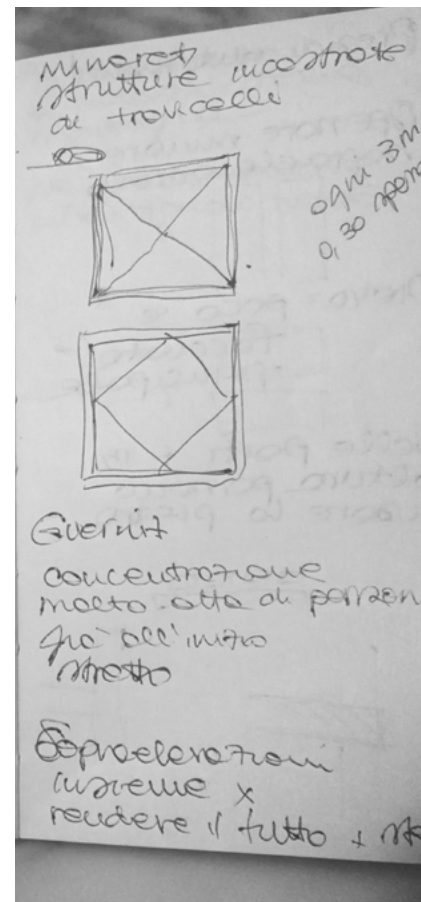 Minareti
strutture incastrate
di travicelli
ogni 3 m
0,30
Guernit
concentrazione
molto alta di
già all'inizio
stretto
Sopraelevazioni
insieme x
rendere il tutto +